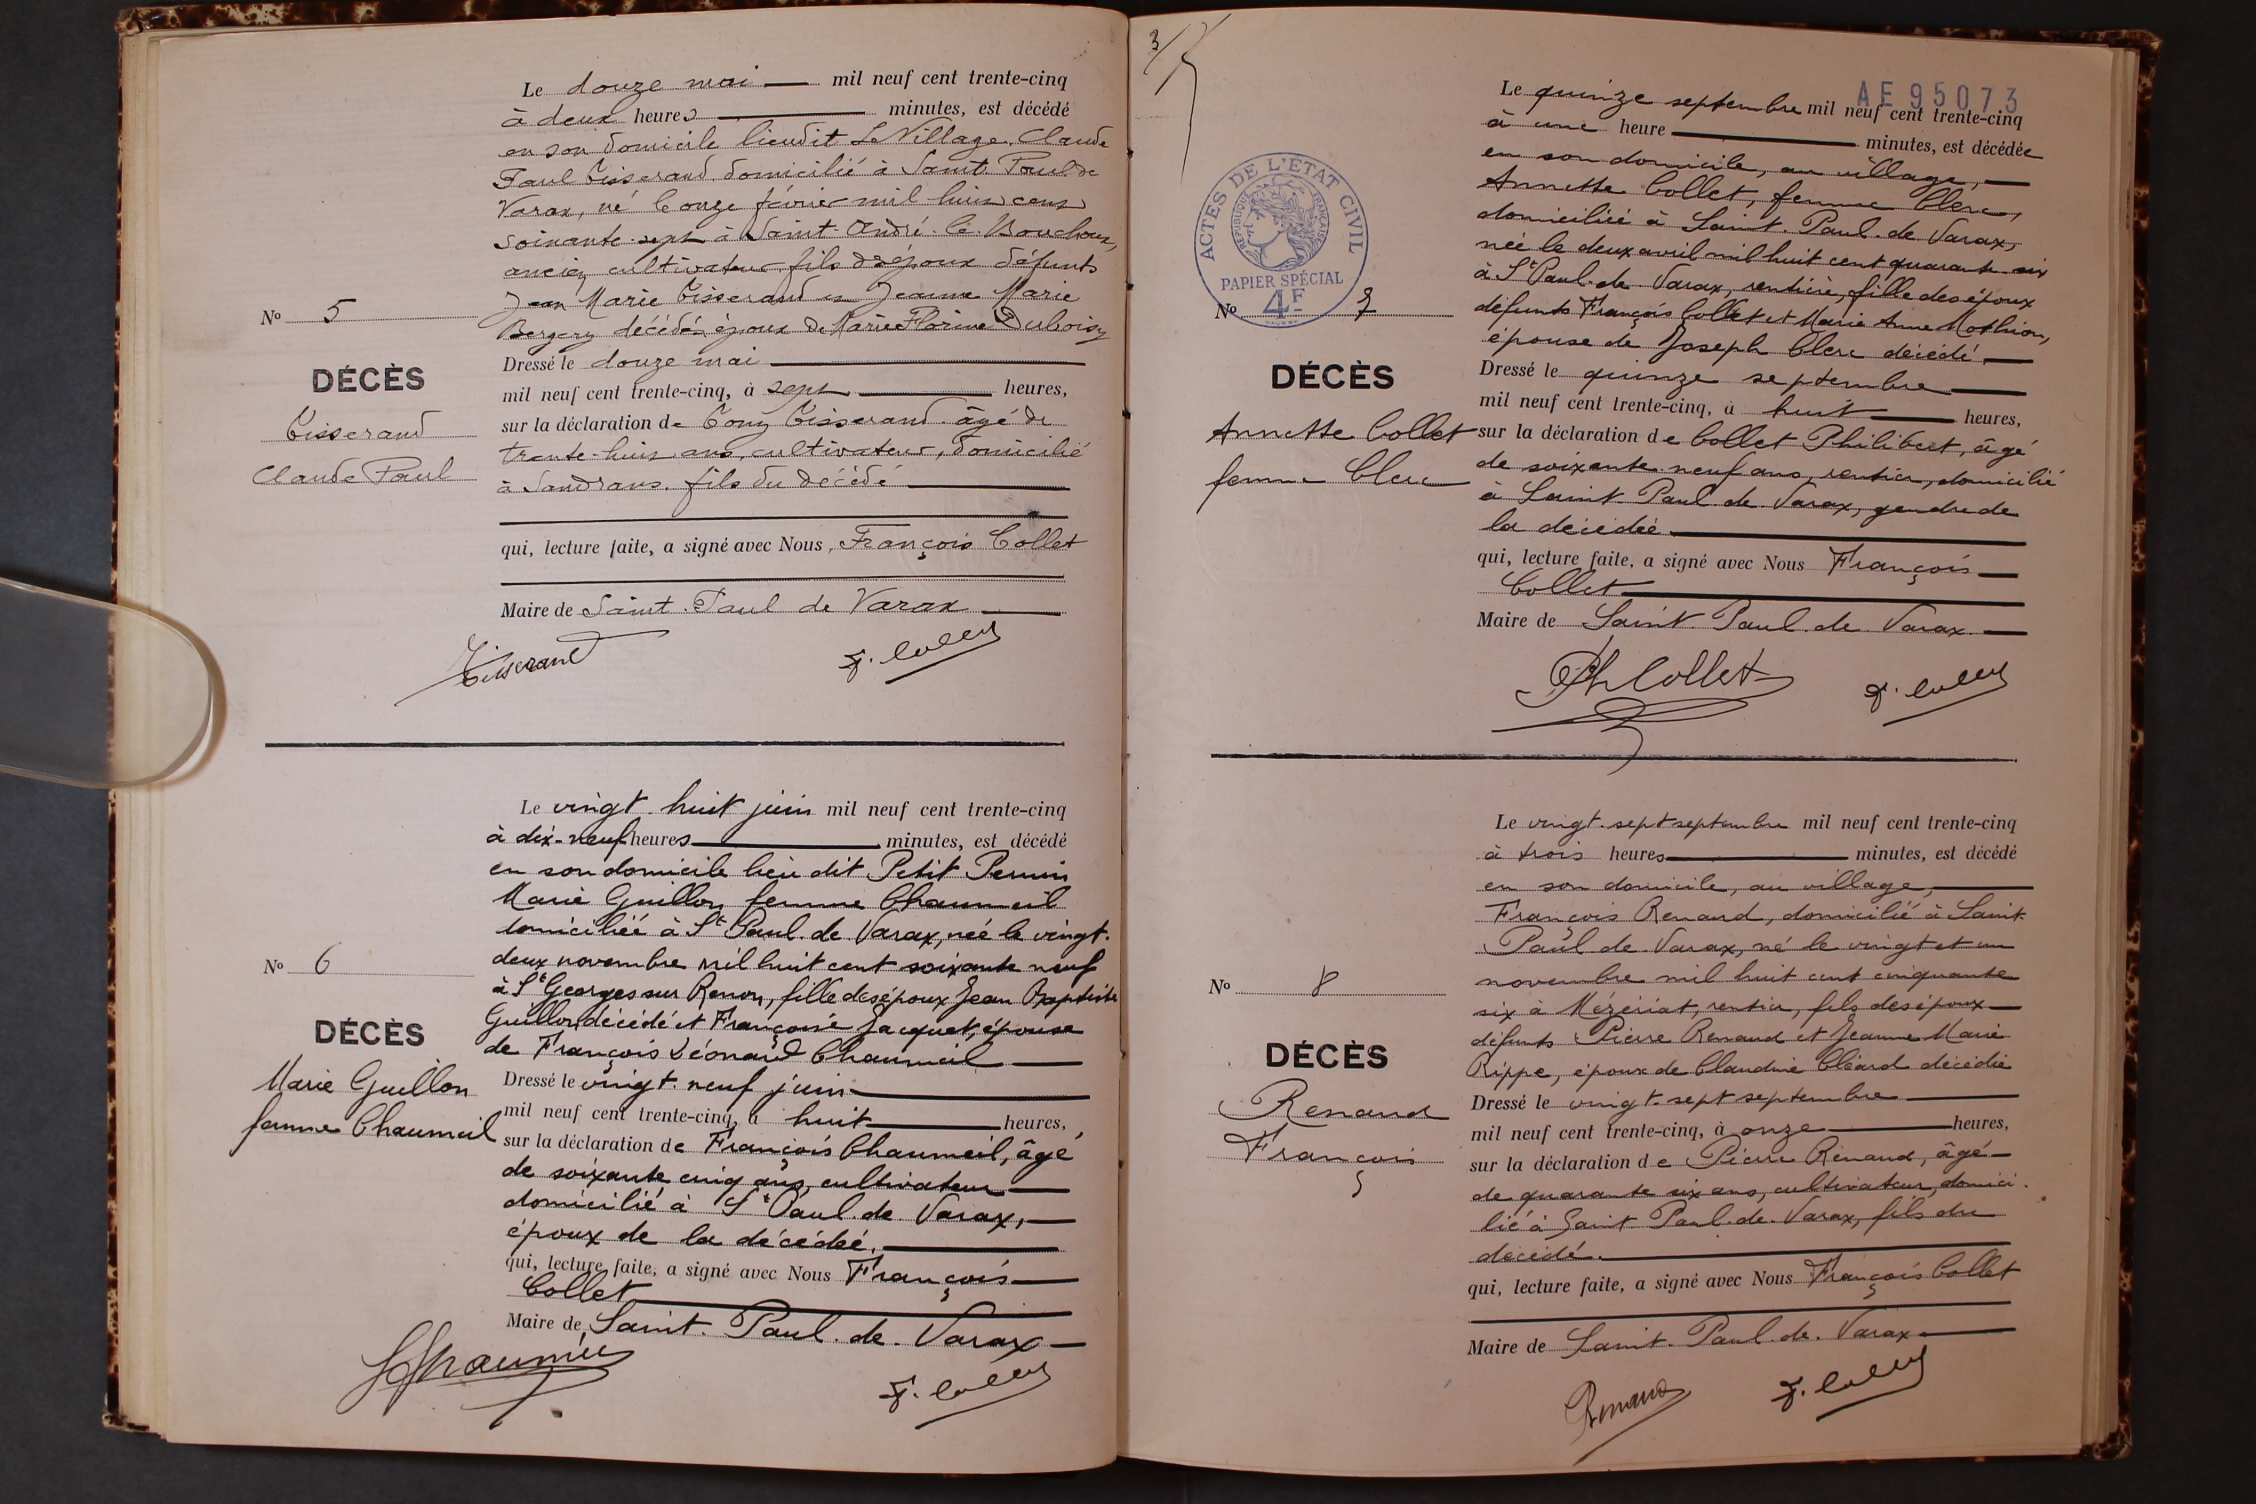 Le douze mai mil neuf cent trente-cinq
à deux heures minutes, est décédé
en son domicile lieudit Le Village, Claude
Paul Tisserand domicilié à Saint Paul de
Varax, né le onze février mil huit cent
soixante-sept à Saint-André-le-Bouchoux,
ancien cultivateur, fils des époux défunts
Jean Marie Tisserand et Jeanne Marie
Bergery décédés époux de Marie Florine Duboisy
No 5
DÉCÈS
Tisserand
Claude Paul
Dressé le douze mai
mil neuf cent trente-cinq, à sept heures,
sur la déclaration de Tony Tisserand âgé de
trente-huit ans, cultivateur, domicilié
à Sandrans, fils du décédé
qui, lecture faite, a signé avec Nous, François Collet
Maire de Saint-Paul de Varax
Tisserand F. Collet
Le vingt-huit juin mil neuf cent trente-cinq
à dix-neuf heures minutes, est décédé
en son domicile lieu dit Petit Perrin
Marie Guillon femme Chaumeil
domiciliée à St Paul-de-Varax, née le vingt-
deux novembre mil huit cent soixante neuf
à St Georges sur Renon, fille des époux Jean Baptiste
Guillon décédé et Françoise Jacquet, épouse
de François Léonard Chaumeil
No 6
DÉCÈS
Marie Guillon
femme Chaumeil
Dressé le vingt-neuf juin
mil neuf cent trente-cinq, à huit heures,
sur la déclaration de François Chaumeil, âgé
de soixante cinq ans, cultivateur
domicilié à St Paul-de-Varax,
époux de la décédée.
qui, lecture faite, a signé avec Nous François
Collet
Maire de Saint-Paul-de-Varax
F. Collet
3/
AE 95073
Le quinze septembre mil neuf cent trente-cinq
à une heure minutes, est décédée
en son domicile, au village,
Annette Collet, femme Clerc,
domiciliée à Saint-Paul-de-Varax,
née le deux avril mil huit cent quarante-six
à St Paul-de-Varax, rentière, fille des époux
défunts François Collet et Marie Anne Mothion,
épouse de Joseph Clerc décédé
ACTES DE L'ETAT CIVIL
REPUBLIQUE FRANÇAISE
PAPIER SPÉCIAL
4F
No 7
DÉCÈS
Annette Collet
femme Clerc
Dressé le quinze septembre
mil neuf cent trente-cinq, à huit heures,
sur la déclaration de Collet Philibert, âgé
de soixante-neuf ans, rentier, domicilié
à Saint-Paul-de-Varax, gendre de
la décédée
qui, lecture faite, a signé avec Nous François
Collet
Maire de Saint-Paul-de-Varax
Ph Collet F. Collet
Le vingt-sept septembre mil neuf cent trente-cinq
à trois heures minutes, est décédé
en son domicile, au village,
François Renaud, domicilié à Saint-
Paul-de-Varax, né le vingt et un
novembre mil huit cent cinquante
six à Mézériat, rentier, fils des époux
défunts Pierre Renaud et Jeanne Marie
Rippe, époux de Claudine Cléard décédée
No 8
DÉCÈS
Renaud
François
Dressé le vingt-sept septembre
mil neuf cent trente-cinq, à onze heures,
sur la déclaration de Pierre Renaud, âgé
de quarante six ans, cultivateur, domici-
lié à Saint-Paul-de-Varax, fils du
décédé.
qui, lecture faite, a signé avec Nous François Collet
Maire de Saint-Paul-de-Varax
Renaud F. Collet